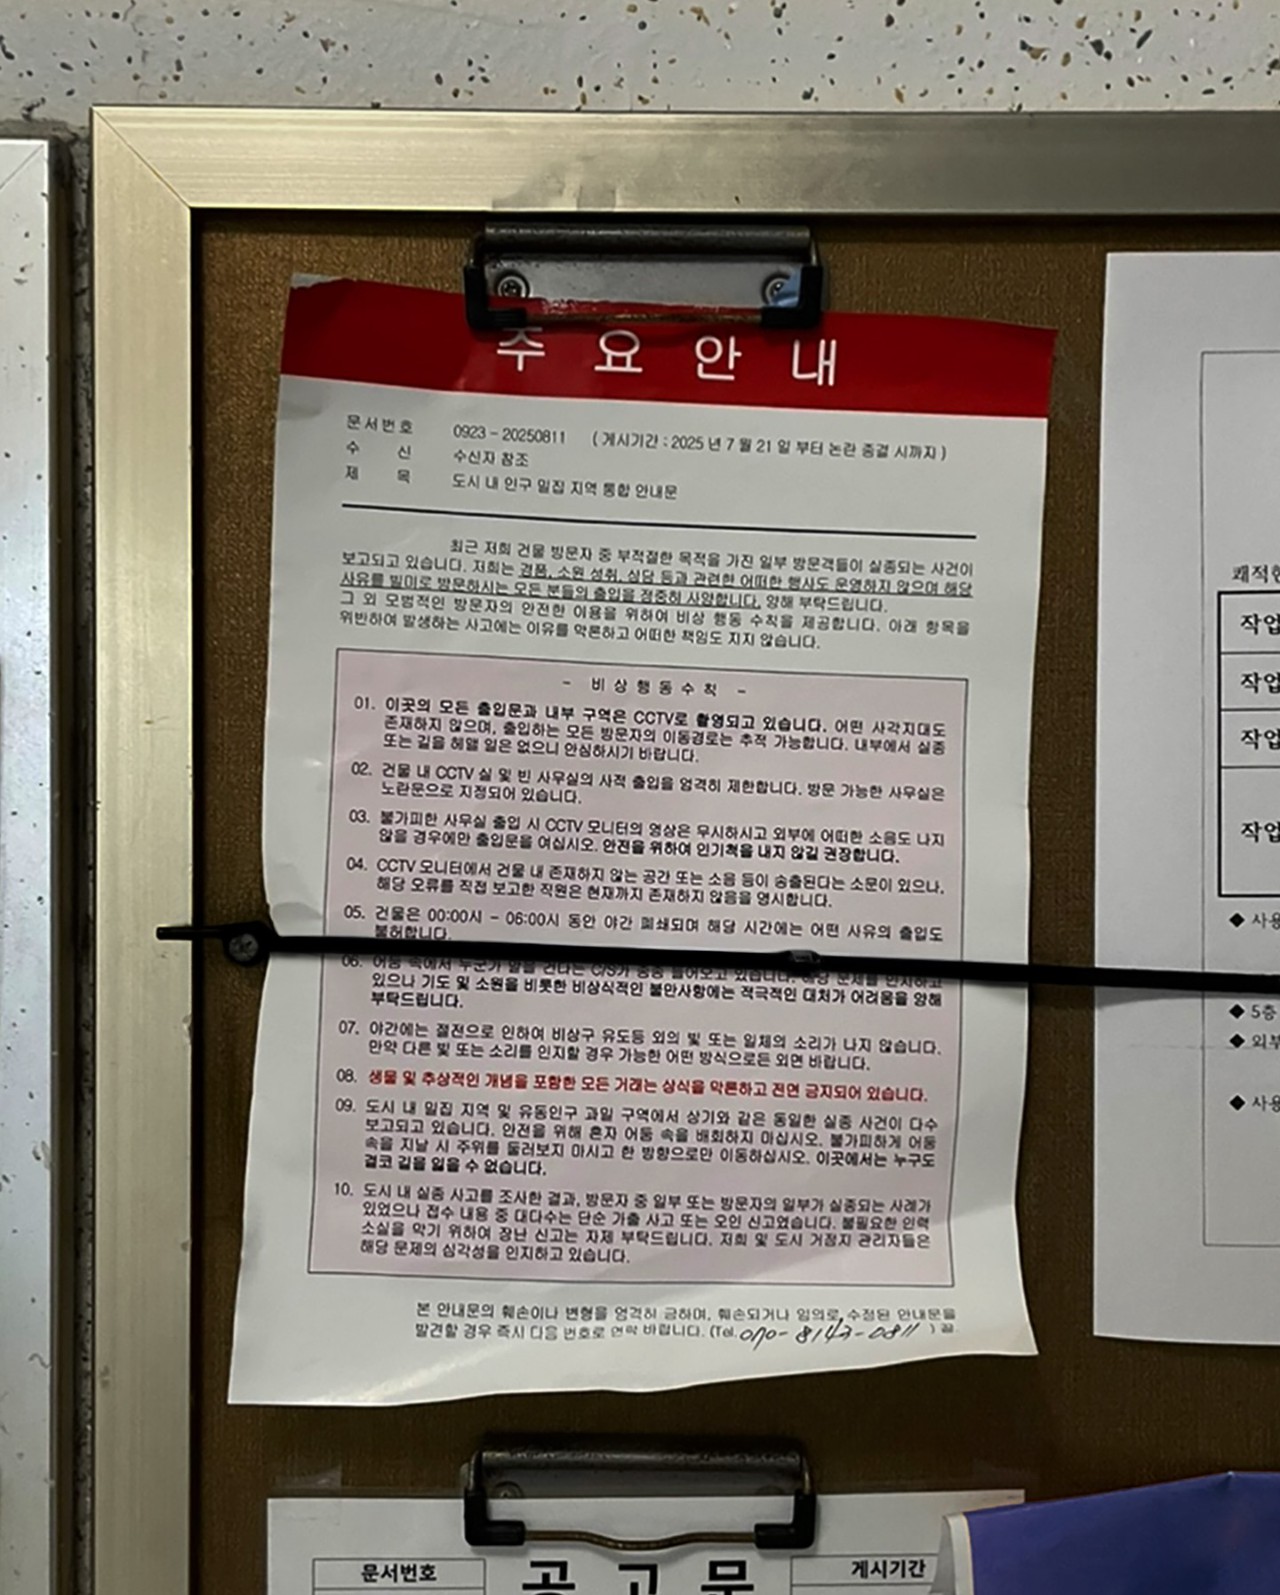 주 요 안 내
문서번호 0923 - 20250811 ( 게시기간 : 2025 년 7 월 21 일 부터 논란 종결 시까지 )
수 신 수신자 참조
제 목 도시 내 인구 밀집 지역 통합 안내문
최근 저희 건물 방문자 중 부적절한 목적을 가진 일부 방문객들이 실종되는 사건이
보고되고 있습니다. 저희는 경품, 소원 성취, 상담 등과 관련한 어떠한 행사도 운영하지 않으며 해당
사유를 빌미로 방문하시는 모든 분들의 출입을 정중히 사양합니다. 양해 부탁드립니다.
그 외 모범적인 방문자의 안전한 이용을 위하여 비상 행동 수칙을 제공합니다. 아래 항목을
위반하여 발생하는 사고에는 이유를 막론하고 어떠한 책임도 지지 않습니다.
- 비 상 행 동 수 칙 -
01. 이곳의 모든 출입문과 내부 구역은 CCTV로 촬영되고 있습니다. 어떤 사각지대도
존재하지 않으며, 출입하는 모든 방문자의 이동경로는 추적 가능합니다. 내부에서 실종
또는 길을 헤맬 일은 없으니 안심하시기 바랍니다.
02. 건물 내 CCTV 실 및 빈 사무실의 사적 출입을 엄격히 제한합니다. 방문 가능한 사무실은
노란문으로 지정되어 있습니다.
03. 불가피한 사무실 출입 시 CCTV 모니터의 영상은 무시하시고 외부에 어떠한 소음도 나지
않을 경우에만 출입문을 여십시오. 안전을 위하여 인기척을 내지 않길 권장합니다.
04. CCTV 모니터에서 건물 내 존재하지 않는 공간 또는 소음 등이 송출된다는 소문이 있으나,
해당 오류를 직접 보고한 직원은 현재까지 존재하지 않음을 명시합니다.
05. 건물은 00:00시 - 06:00시 동안 야간 폐쇄되며 해당 시간에는 어떤 사유의 출입도
불허합니다.
06. 어둠 속에서 누군가 말을 건다는 C/S가 종종 들어오고 있습니다. 해당 문제를 인지하고
있으나 기도 및 소원을 비롯한 비상식적인 불만사항에는 적극적인 대처가 어려움을 양해
부탁드립니다.
07. 야간에는 절전으로 인하여 비상구 유도등 외의 빛 또는 일체의 소리가 나지 않습니다.
만약 다른 빛 또는 소리를 인지할 경우 가능한 어떤 방식으로든 외면 바랍니다.
08. 생물 및 추상적인 개념을 포함한 모든 거래는 상식을 막론하고 전면 금지되어 있습니다.
09. 도시 내 밀집 지역 및 유동인구 과밀 구역에서 상기와 같은 동일한 실종 사건이 다수
보고되고 있습니다. 안전을 위해 혼자 어둠 속을 배회하지 마십시오. 불가피하게 어둠
속을 지날 시 주위를 둘러보지 마시고 한 방향으로만 이동하십시오. 이곳에서는 누구도
결코 길을 잃을 수 없습니다.
10. 도시 내 실종 사고를 조사한 결과, 방문자 중 일부 또는 방문자의 일부가 실종되는 사례가
있었으나 접수 내용 중 대다수는 단순 가출 사고 또는 오인 신고였습니다. 불필요한 인력
소실을 막기 위하여 장난 신고는 자제 부탁드립니다. 저희 및 도시 거점지 관리자들은
해당 문제의 심각성을 인지하고 있습니다.
본 안내문의 훼손이나 변형을 엄격히 금하며, 훼손되거나 임의로 수정된 안내문을
발견할 경우 즉시 다음 번호로 연락 바랍니다. (Tel. 070-8143-0811 ) 끝.
쾌적한
작업
작업
작업
작업
◆ 사용
◆ 5층
◆ 외부
◆ 사용
문서번호 공 고 문 게시기간